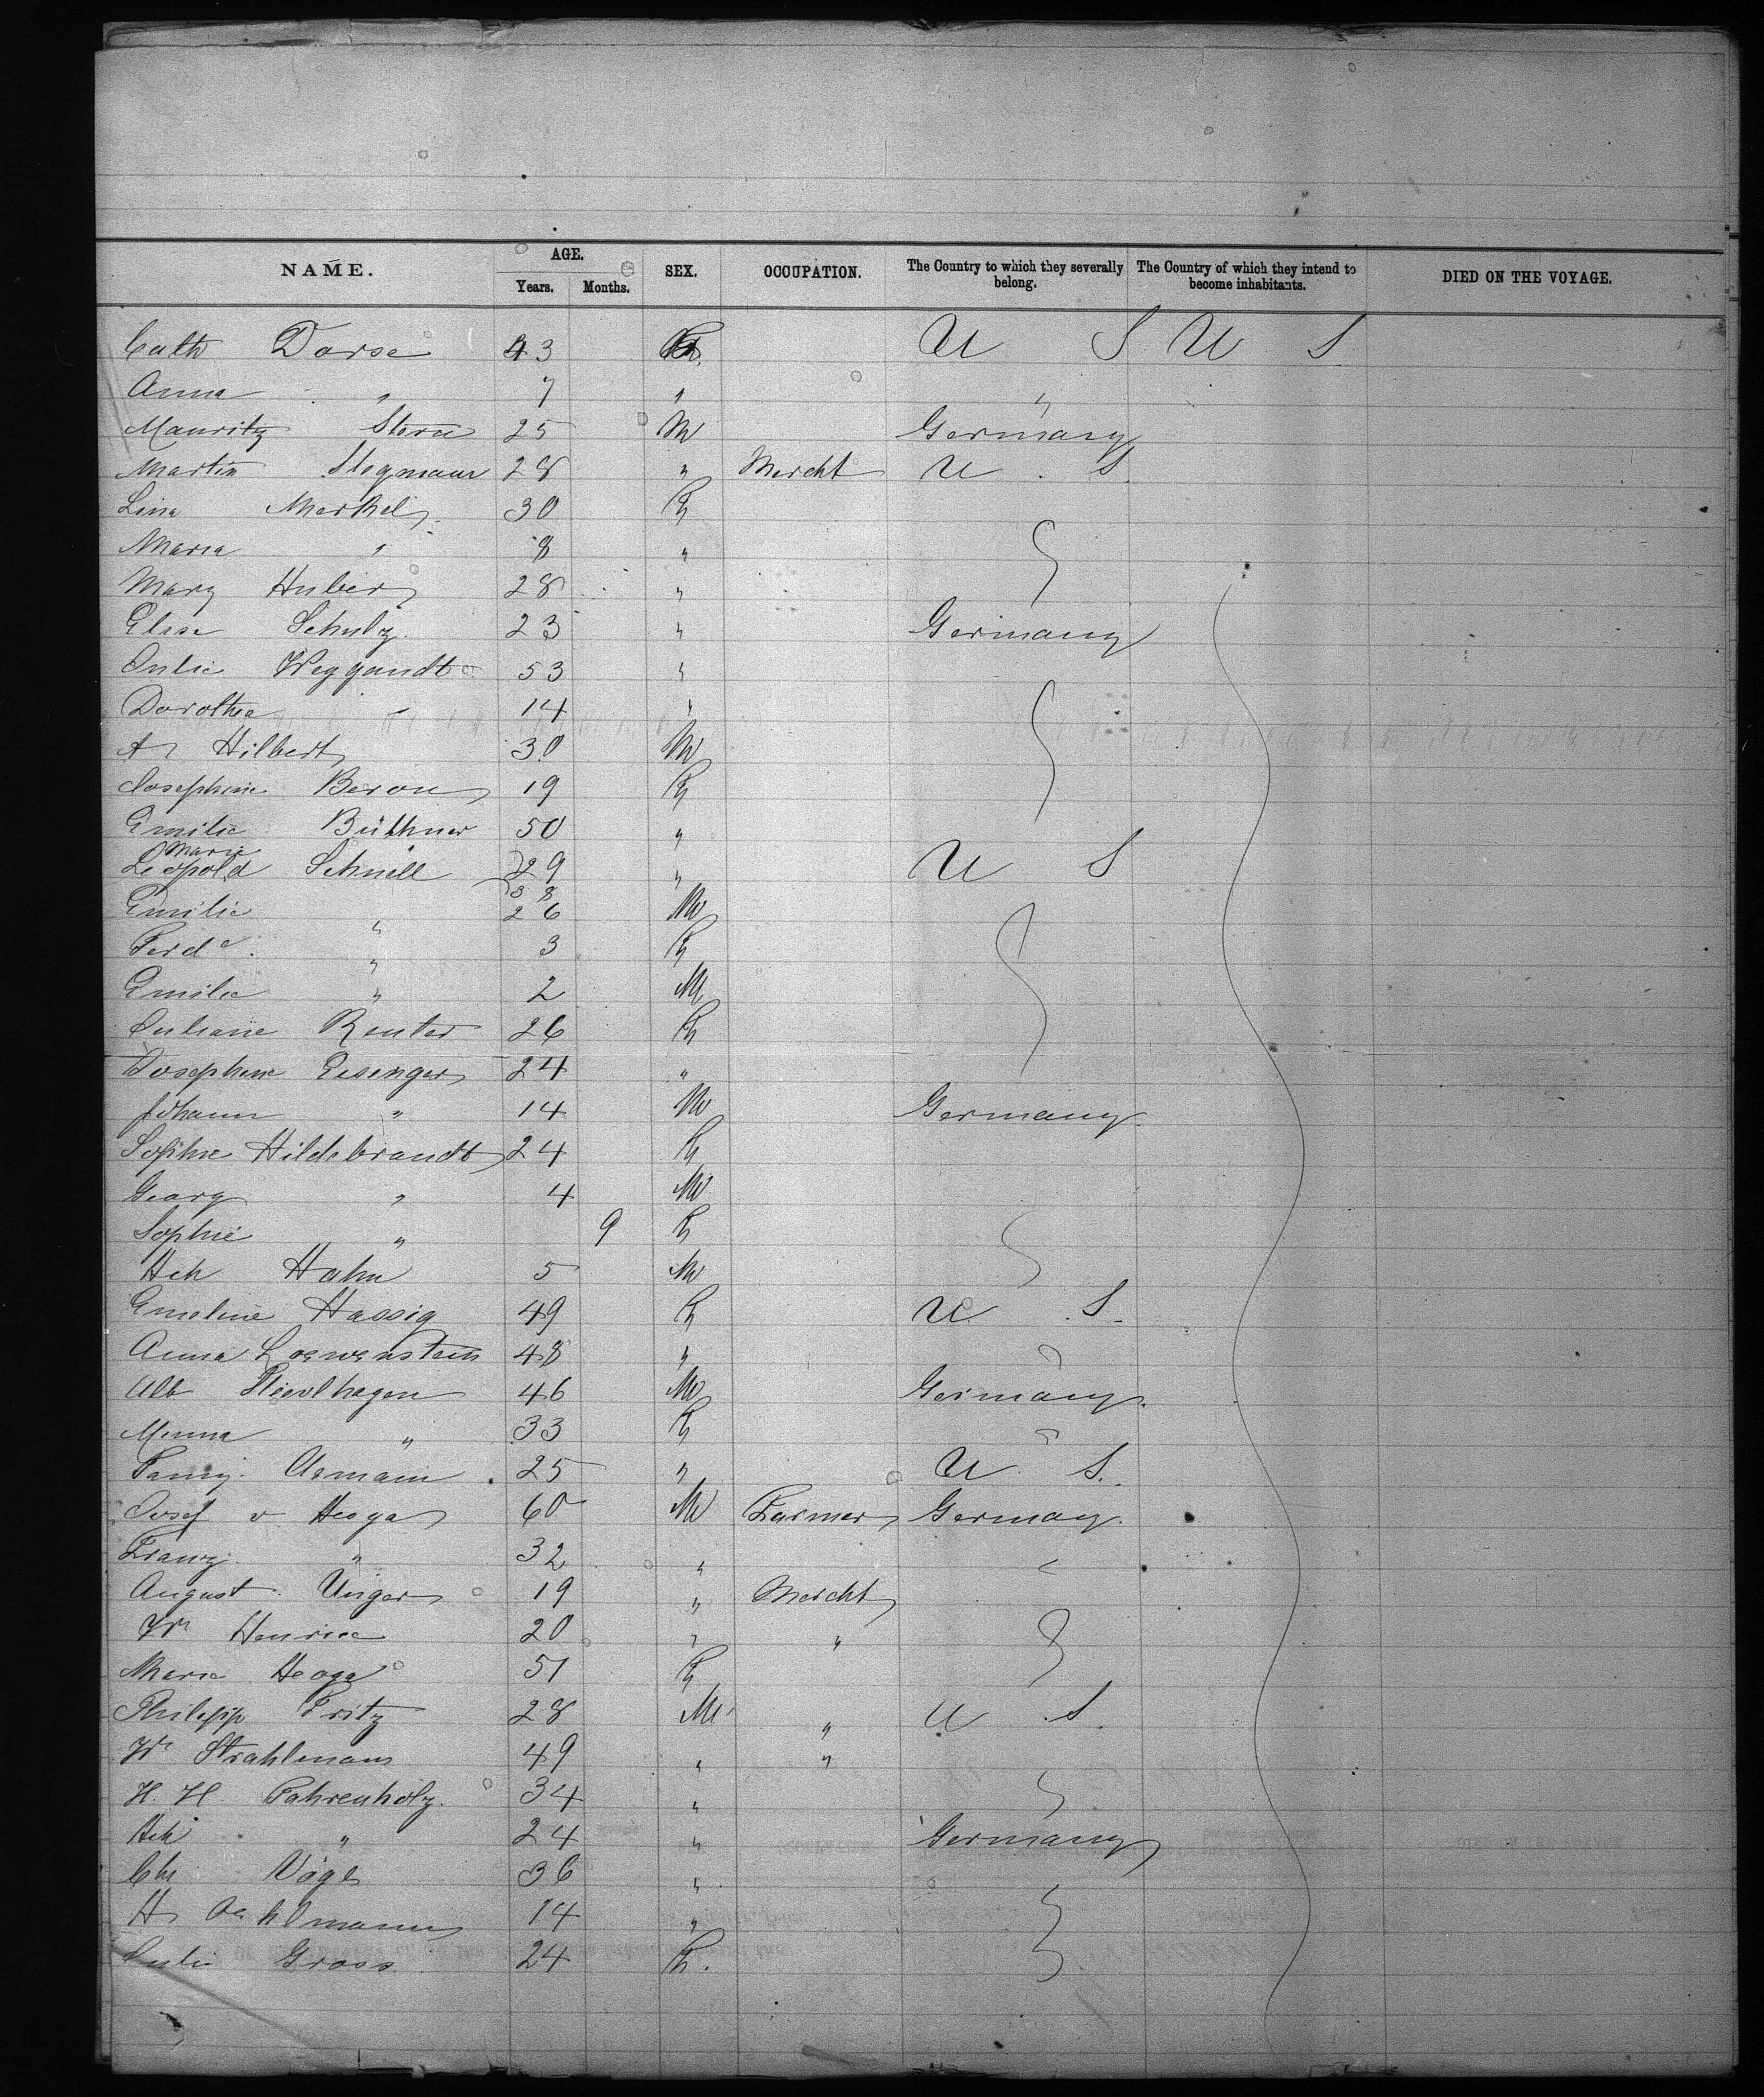 NAME. AGE. SEX. OCCUPATION. The Country to which they severally belong. The Country of which they intend to become inhabitants. DIED ON THE VOYAGE.
Years. Months.
Cath Dorse 43 U S U S
Anna " 7 " "
Mauritz Stern 25 M Germany
Martin Stegmaur 28 " Mercht U. S.
Lina Merkel 30 F
Maria " 8 "
Mary Huber 28 "
Elise Schulz 23 " Germany
Julie Weygandt 53 "
Dorothea " 14 "
A Hilbert 30 M
Josephine Beron 19 F
Emilie Büthner 50 "
Marie
Leopold Schnell 29 " U S
38
Emilie " 26 M
Ferd " 3 F
Emilie " 2 M
Juliane Reuter 26 F
Josephine Eisenger 24 "
Johann " 14 M Germany
Sophie Hildebrandt 24 F
Georg " 4 M
Sophie " 9 F
Hch Hahn 5 M
Emeline Hassig 49 F U. S.
Anna Loewenstein 48 "
Alb 46 M Germany.
Minna " 33 F
Fanny Asmann 25 " U S.
Josef v Heoga 60 M Farmer Germany.
Franz " 32 " "
August Unger 19 " Mercht
Wm 20 " "
Maria Heoga 51 F
Philipp Fritz 28 M " U S.
Wm Strahlmann 49 " "
H. H. Fahrenholz. 34 "
Hch " 24 " Germany
Chr Vogel 36 "
H Dahlmann 14 "
Julie Gross 24 F.